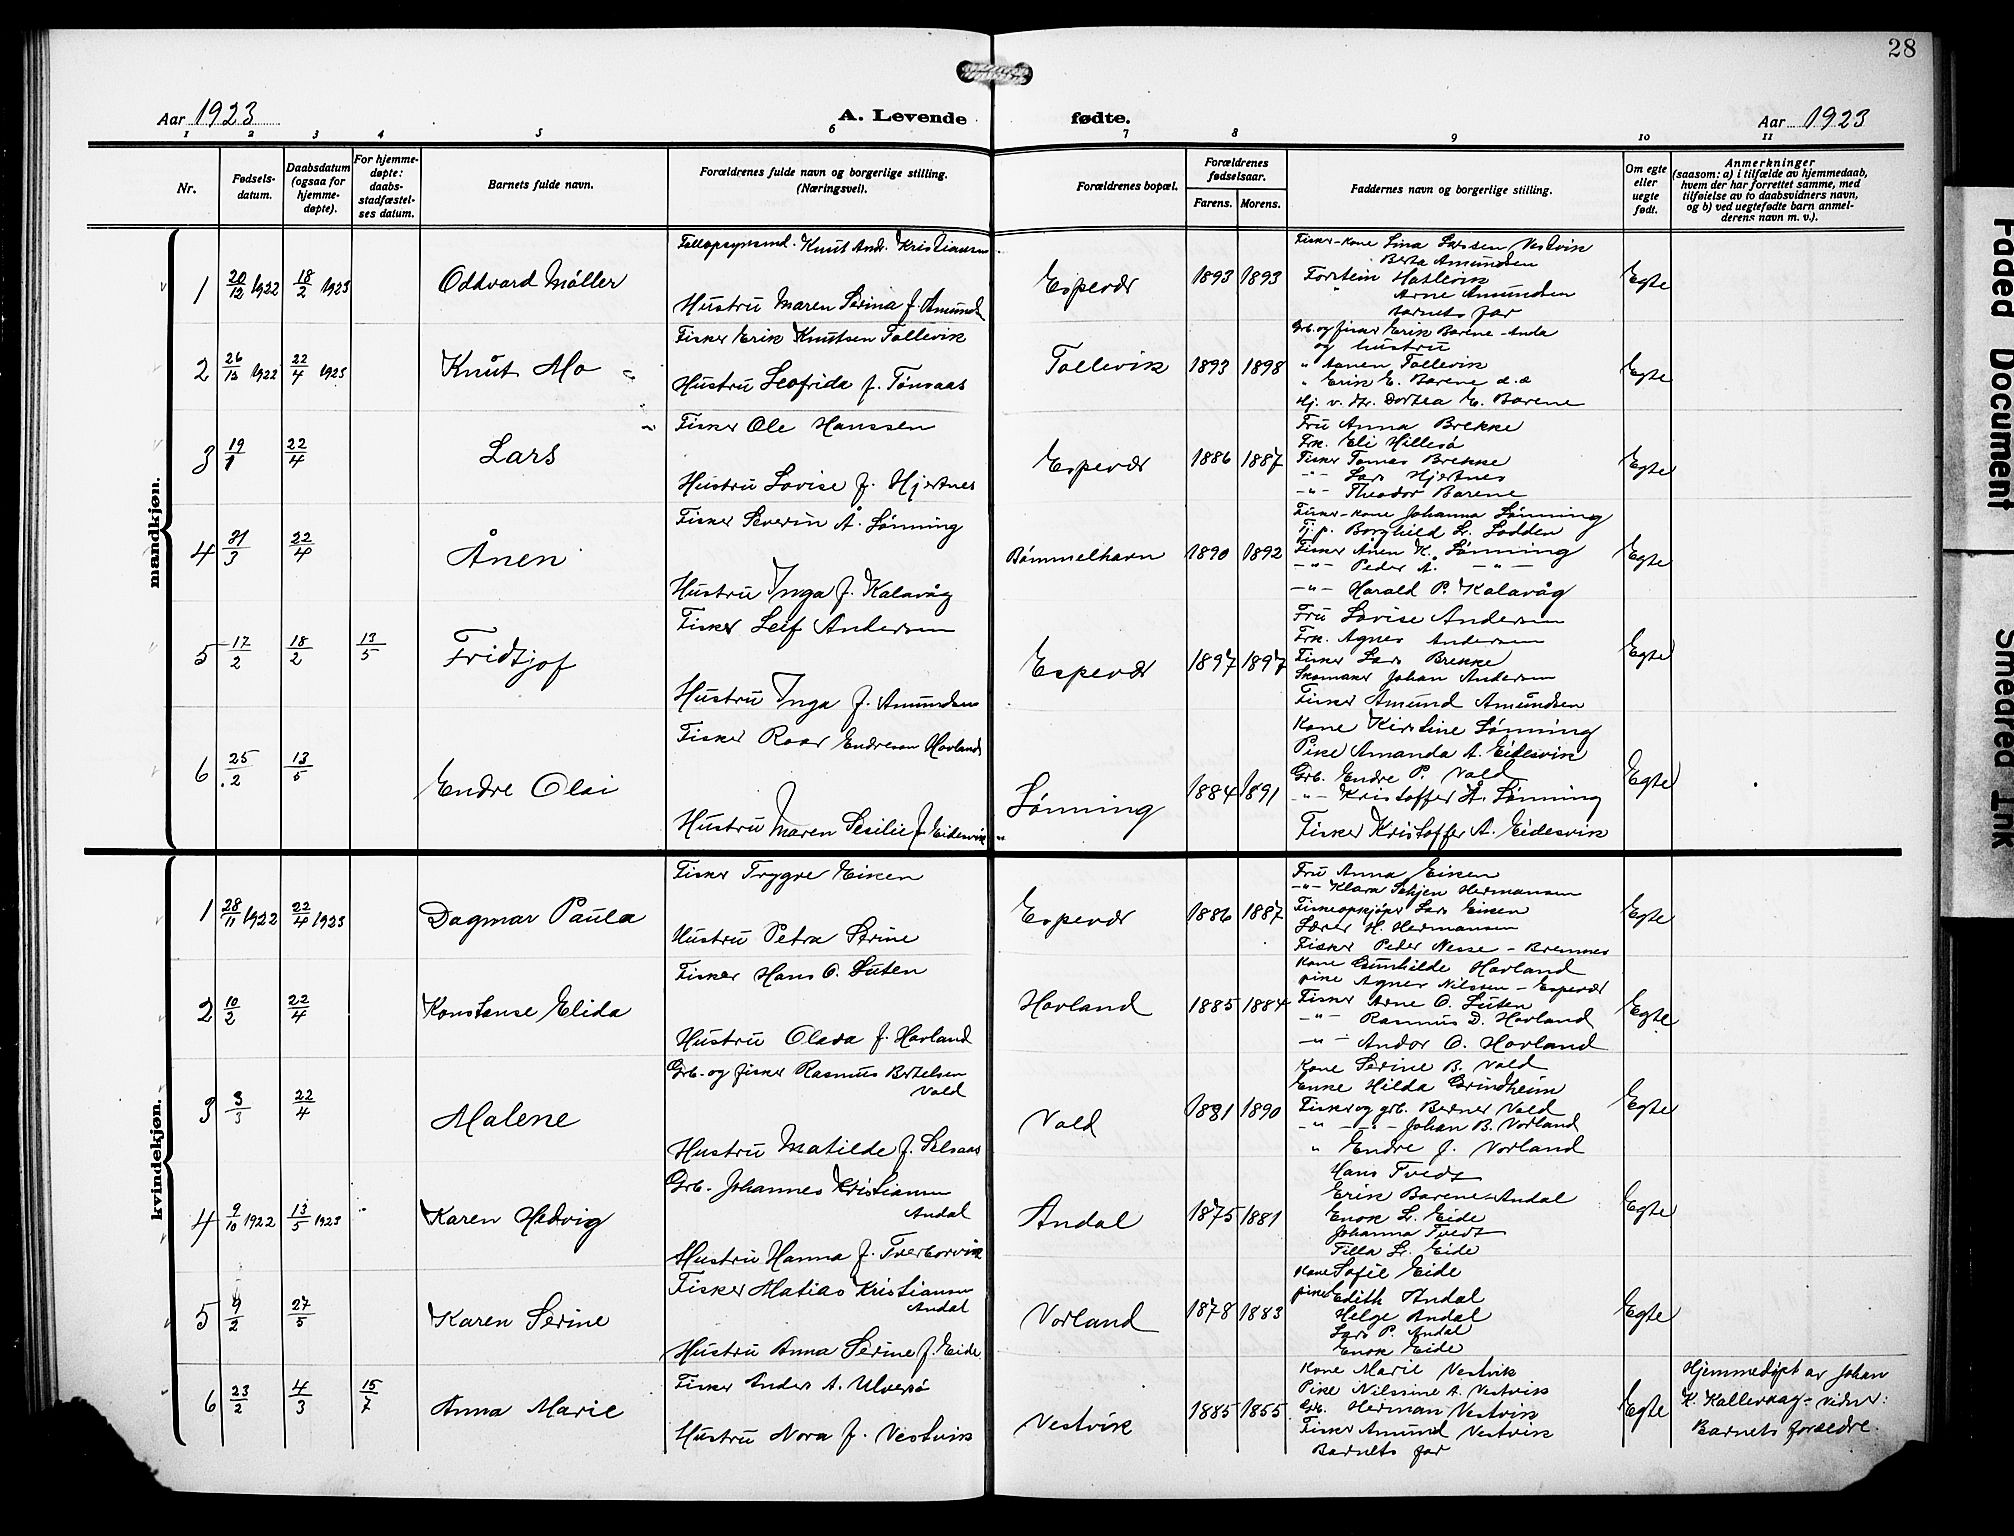 28
Aar 1923
A. Levende
fødte.
Aar 1923
1 2 3 4 5 6 7 8 9 10 11
Nr.
Fødsels-
datum.
Daabsdatum
(ogsaa for
hjemme-
døpte).
For hjemme-
døpte:
daabs-
stadfæstel-
ses datum.
Barnets fulde navn.
Forældrenes fulde navn og borgerlige stilling.
(Næringsvei).
Forældrenes bopæl.
Forældrenes
fødselsaar.
Farens. Morens.
Faddernes navn og borgerlige stilling.
Om egte
eller
uegte
født.
Anmerkninger
(saasom: a) i tilfælde av hjemmedaab,
hvem der har forrettet samme, med
tilføielse av to daabsvidners navn,
og b) ved uegtefødte barn anmel-
derens navn m. v.).
mandkjøn.
1 20/12 1922 18/2 1923 Oddvard Møller
Knut Andr. Kristiansen
Hustru Maren Serina f. Amunds
Espevær 1893 1893
Fisker-kone Lina Larssen Vestvik
Berta Amundsen
Torstein Hatlevik
" Arne Amundsen
Barnets far
Egte
2 26/12 1922 22/4 1923 Knut Mo
Fisker Erik Knutsen Tollevik
Hustru Leofrida f. Tønsaas
Tollevik 1893 1898
Grb. og fisker Erik Barene-Anda
og hustru
" Aanen Tollevik
" Erik E. Barene d.e
Hj. v. dtr. Dortea E. Barene
Egte
3 19/1 22/4 Lars
Fisker Ole Hanssen
Hustru Lovise f. Hjertnes
Espevær 1886 1887
Fru Anna Brekke
Frk. Eli Hillesø
Fisker Tomas Brekke
-"- Lars Hjertnes
-"- Theodor Barene
Egte
4 21/3 22/4 Ånen
Fisker Severin Å. Lønning
Hustru Inga f. Kalavåg
Bømmelhavn 1890 1892
Fisker-kone Johanna Lønning
Tj. p. Borghild L. Lodden
Fisker Ånen K. Lønning
-"- Peder Å. -"-
-"- Harald P. Kalavåg
Egte
5 17/2 18/2 13/5 Fridtjof
Fisker Leif Andersen
Hustru Inga f. Amundsen
Espevær 1897 1897
Fru Lovise Andersen
Frk. Agnes Andersen
Fisker Lars Brekke
Skomaker Johan Andersen
Fisker Amund Amundsen
Egte
6 25/2 13/5 Endre Olai
Fisker Roar Endresen Hovland
Hustru Maren Sesilie f. Eidesvik
Lønning 1884 1891
Kone Kirstine Lønning
Pike Amanda A. Eidesvik
Grb. Endre P. Vald
-"- Kristoffer H. Lønning
Fisker Kristoffer A. Eidesvik
Egte
kvindekjøn.
1 28/11 1922 22/4 1923 Dagmar Paula
Fisker Trygve Eiken
Hustru Petra Serine
Espevær 1886 1887
Fru Anna Eiken
-"- Klara Hermansen
Fiskeopkjøper Lars Eiken
Lærer H. Hermansen
Fisker Peder Nesse - Bremnes
Egte
2 10/2 22/4 Konstanse Elida
Fisker Hans O. Luten
Hustru Olava f. Hovland
Hovland 1885 1884
Kone Gunhilde Hovland
pike Agnes Nilssen - Espevær
Fisker Arne O. Luten
-"- Rasmus D. Hovland
-"- Andor O. Hovland
Egte
3 3/3 22/4 Malene
Grb. og fisker Rasmus Bertelsen
Vold
Hustru Matilde f. Selsaas
Vold 1881 1890
Kone Serine B. Vold
Enke Hilda Grindheim
Fisker og grb. Berner Vold
-"- -"- Johan B. Vorland
" Endre J. Vorland
Egte
4 9/10 1922 13/5 1923 Karen Hedvig
Grb. Johannes Kristiansen
Andal
Hustru Hanna f. Tverborvik
Andal 1875 1881
Hans Tvedt
Erik Barene-Andal
Enok L. Eide
Johanna Tvedt
Tilla L. Eide
Egte
5 9/2 27/5 Karen Serine
Fisker Matias Kristiansen
Andal
Hustru Anna Serine f. Eide
Vorland 1878 1883
Kone Sofie Eide
pike Edith Andal
Helge Andal
Lars P. Andal
Enok Eide
Egte
6 23/2 4/3 15/7 Anna Marie
Fisker Anders A. Ulversø
Hustru Nora f. Vestvik
Vestvik 1885 1855
Kone Marie Vestvik
Pike Nilssine A. Vestvik
Grb. Herman Vestvik
Fisker Amund Vestvik
Barnets far
Egte
Hjemmedøpt av Johan
K. Kallevaag - vidner:
Barnets forældre.
Faded Document
Smeared Ink